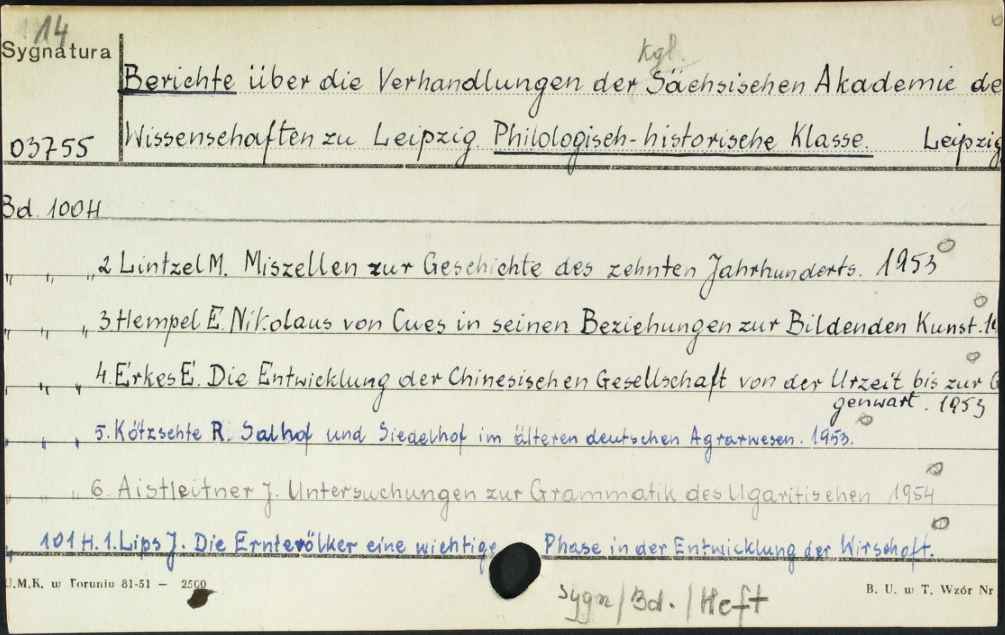 14
Sygnatura
kgl.
Berichte über die Verhandlungen der Sächsischen Akademie de
03755 Wissenschaften zu Leipzig. Philologisch-historische Klasse. Leipzig
Bd. 100 H
" " " 2 Lintzel M. Miszellen zur Geschichte des zehnten Jahrhunderts. 1953
" " " 3 Hempel E. Nikolaus von Cues in seinen Beziehungen zur Bildenden Kunst. 19
" " " 4. Erkes E. Die Entwicklung der Chinesischen Gesellschaft von der Urzeit bis zur G
genwart. 1953
" " " 5. Kötzschte R. Salhof und Siedelhof im älteren deutschen Agrarwesen. 1953.
" " " 6. Aistleitner J. Untersuchungen zur Grammatik des Ugaritischen 1954
" 101 H. 1. Lips J. Die Erntevölker eine wichtige Phase in der Entwicklung der Wirschaft.
U.M.K. w Toruniu 81-51 — 2500
B. U. w T. Wzór Nr
Sygn/Bd./Heft